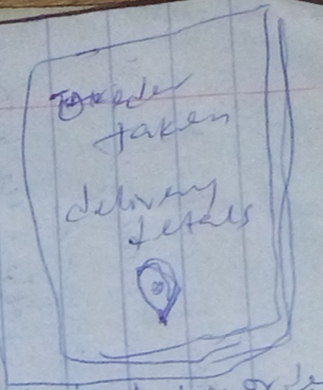 Order
taken
delivery
details